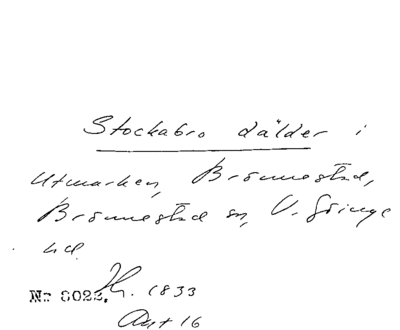 Stockabro dälder i
Utmarken, Brönnestad,
Brönnestad sn, V. Göinge
hd
No 8022. H. 1833
Akt 16